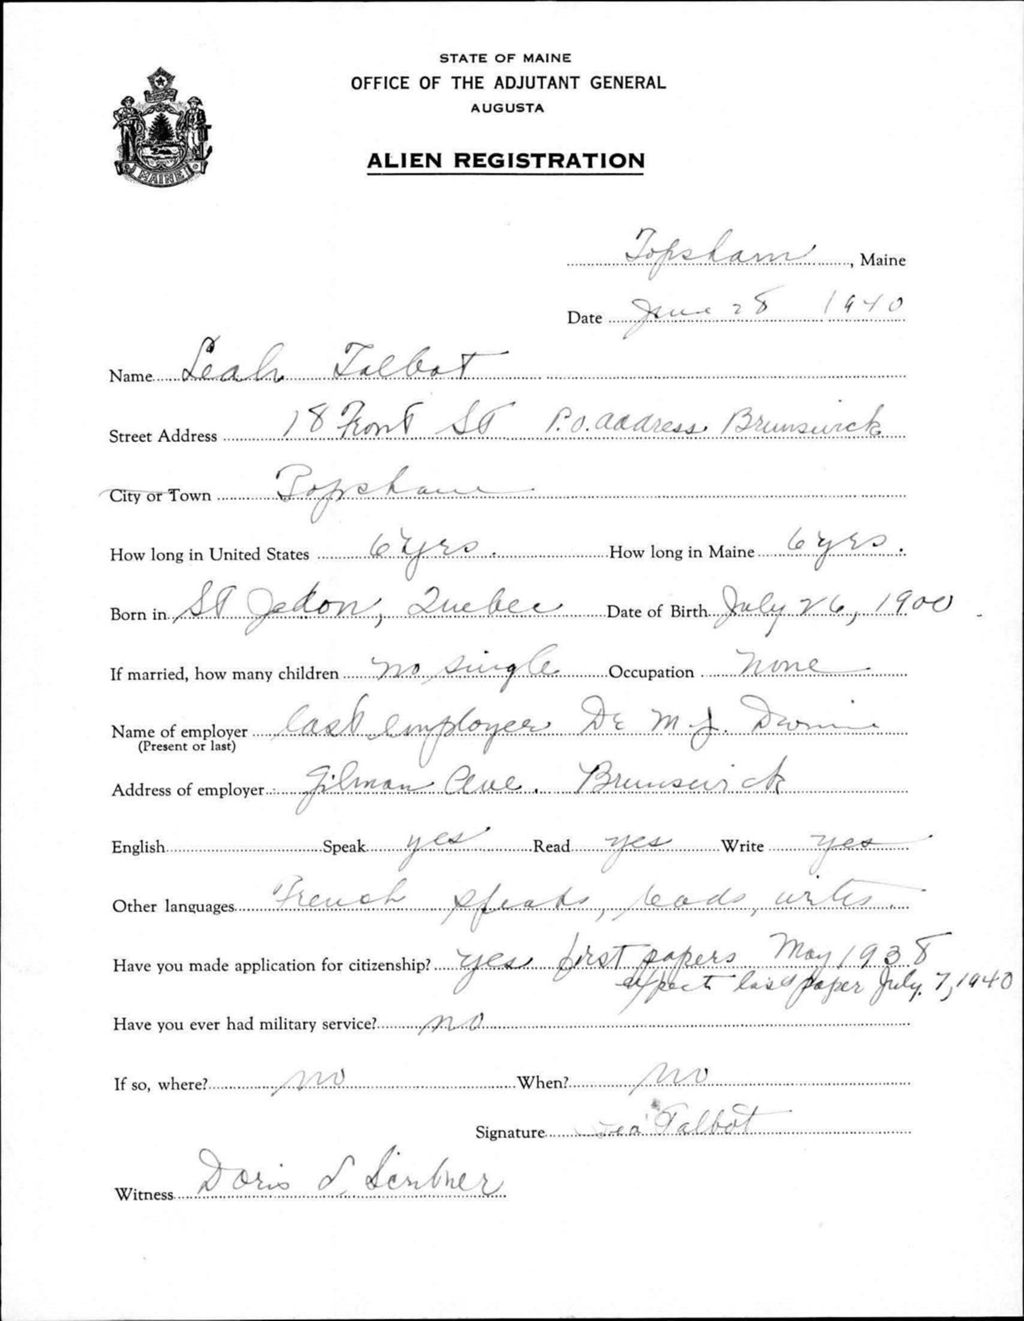 STATE OF MAINE
OFFICE OF THE ADJUTANT GENERAL
AUGUSTA
MAINE
ALIEN REGISTRATION
Topsham, Maine
Date June 28 1940
Name Leah Talbot
Street Address 18 Front St P.O. address Brunswick
City or Town Topsham
How long in United States 6 yrs. How long in Maine 6 yrs.
Born in St , Quebec Date of Birth July 26, 1900
If married, how many children no single Occupation none
Name of employer last employer Dr M. J.
(Present or last)
Address of employer Gilman Ave. Brunswick
English Speak yes Read yes Write yes
Other languages French speaks, reads, writes.
Have you made application for citizenship? yes first papers May 1938
expect last paper July 7, 1940
Have you ever had military service? no
If so, where? no When? no
Signature Talbot
Witness Doris L. Scribner